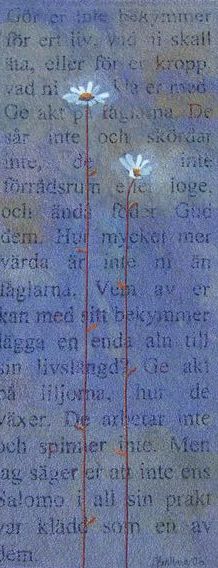 Gör er inte bekymmer
för ert liv, vad ni skall
äta, eller för er kropp,
vad ni a är med
Ge akt på fåglarna. De
sår inte och skördar
inte, de inte
förrådsrum eller loge,
och ändå föder Gud
dem. Hur mycket mer
värda är inte ni än
fåglarna. Vem av er
kan med sitt bekymmer
lägga en enda aln till
sin livslängd? Ge akt
på liljorna, hur de
växer. De arbetar inte
och spinner inte. Men
jag säger er att inte ens
Salomo i all sin prakt
var klädd som en av
dem.